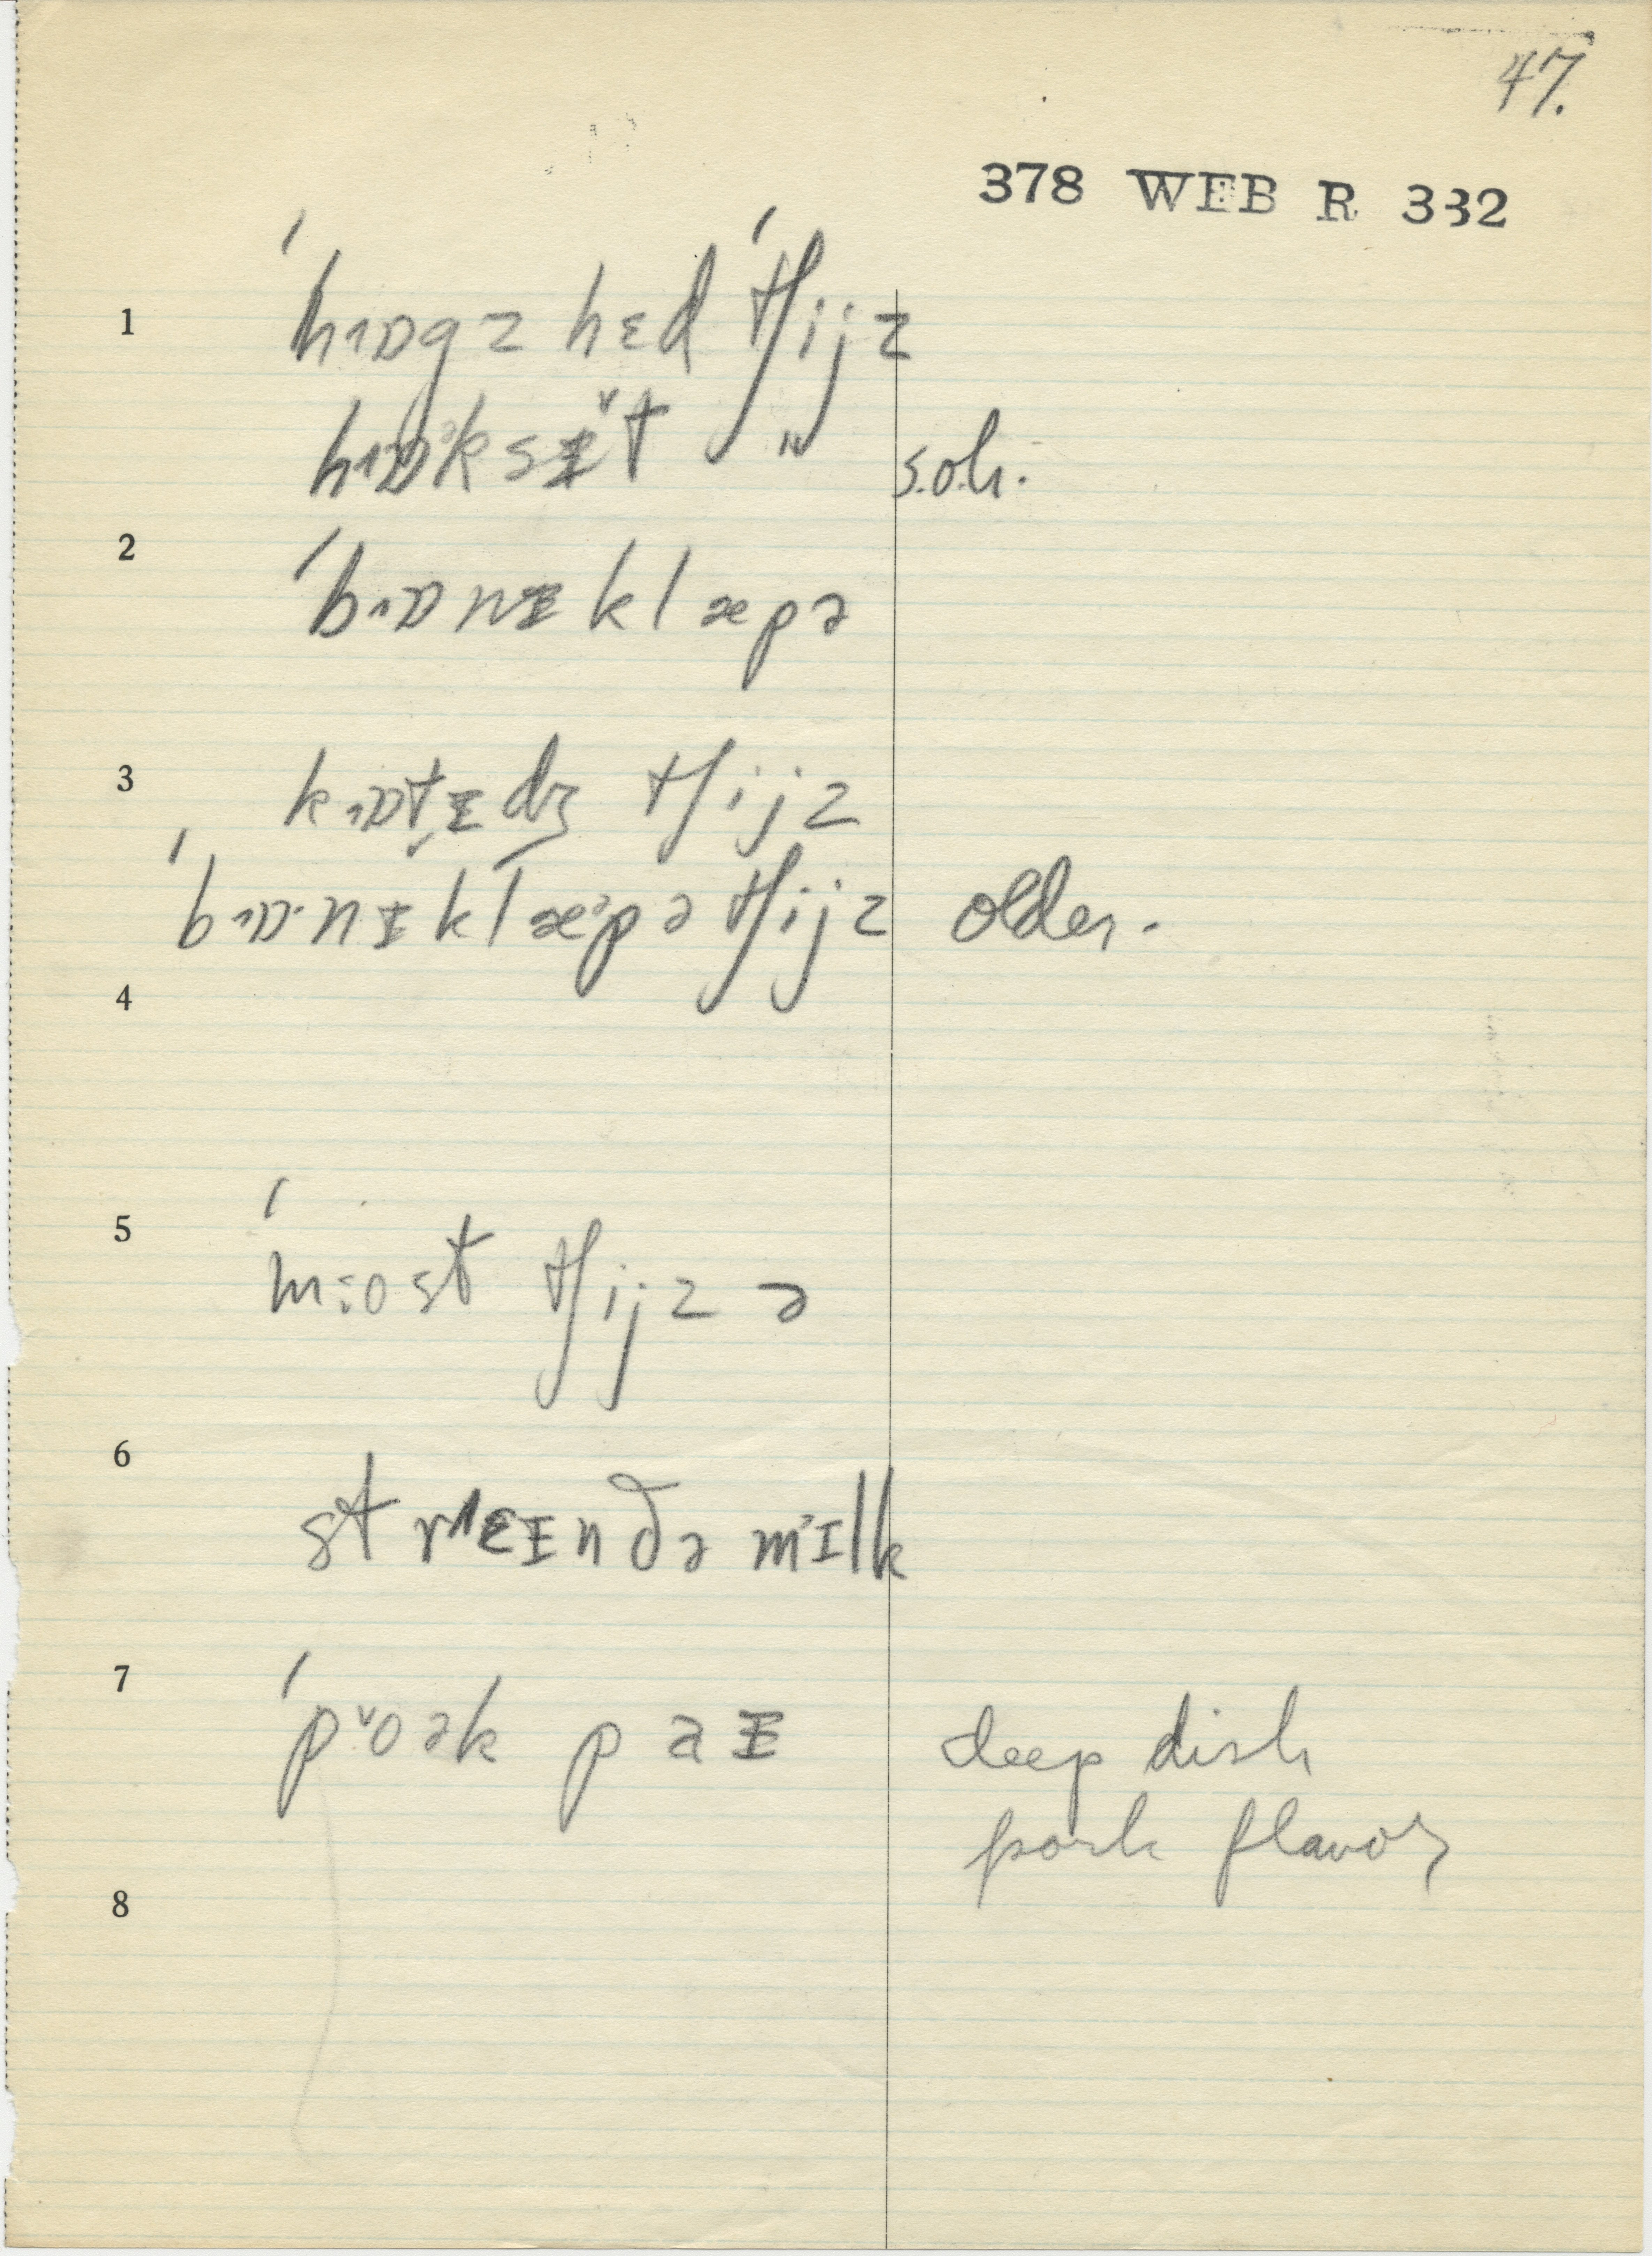 47.
378 WEB R 332
1 ˈhɒgz hɛd ˈtʃijz
hɒᵊk sɪ̵̌t s.o.h.
2 ˈbɒnɪ̵ klæpə
3 kɒtɪ̵dʒ tʃijz
ˈbɒ·nɪ̵ klæᵊpə tʃijz older.
4
5 ˈmost tʃijz ə
6 strɛɪ̵n ðə mɪlk
7 ˈpoək paɪ̵ deep dish
pork flavor
8